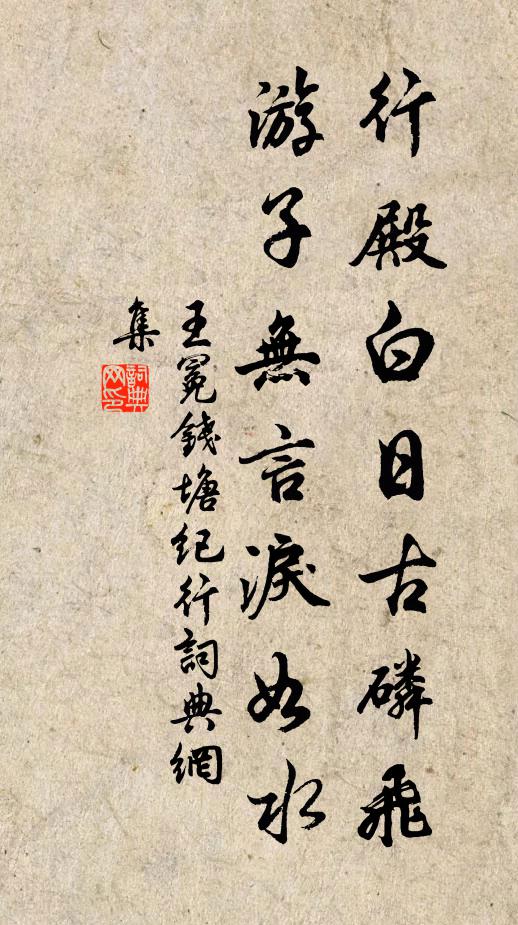 行殿白日古磷飛
游子無言淚如水
王冕錢塘紀行詞典網
集
詞典網印